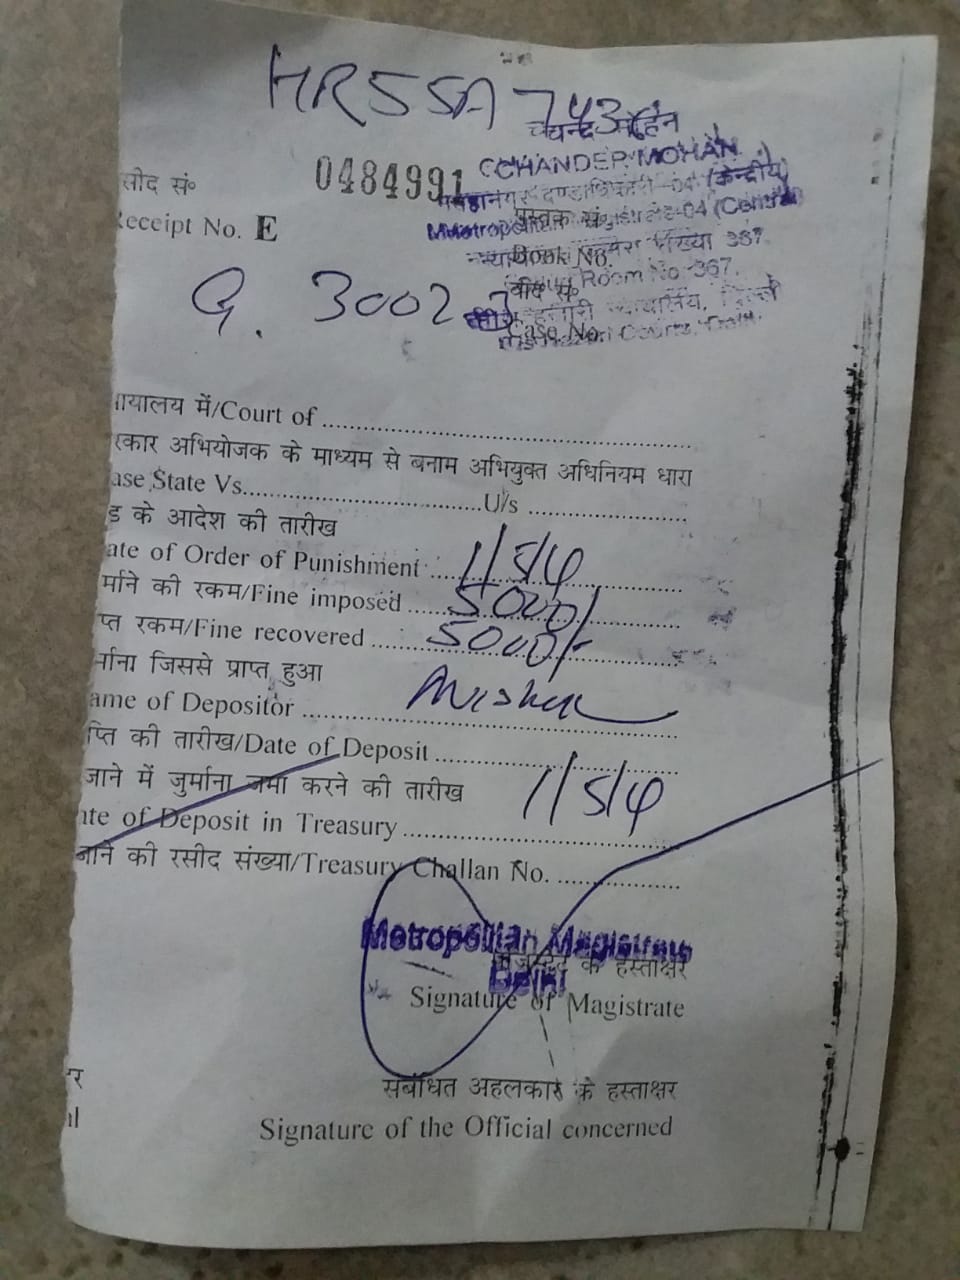 HR55A 743
चन्दर मोहन
CHANDER MOHAN
सीद सं०
0484991
महानगर दण्डाधिकारी-04 (केन्द्रीय)
Receipt No. E
Metropolitan Magistrate-04 (Central)
पुस्तक सं०
Book No.
संख्या 367
Room No. 367,
वाद सं०
G. 3002
Case No.
Courts, Delhi
ायालय में/Court of
रकार अभियोजक के माध्यम से बनाम अभियुक्त अधिनियम धारा
ase State Vs. U/s
ड के आदेश की तारीख
ate of Order of Punishment
र्माने की रकम/Fine imposed 5000/
प्त रकम/Fine recovered 5000/-
र्माना जिससे प्राप्त हुआ
ame of Depositor
प्ति की तारीख/Date of Deposit
जाने में जुर्माना जमा करने की तारीख
ate of Deposit in Treasury
जाने की रसीद संख्या/Treasury Challan No.
Metropolitan Magistrate
Delhi
के हस्ताक्षर
Signature of Magistrate
संबंधित अहलकार के हस्ताक्षर
Signature of the Official concerned